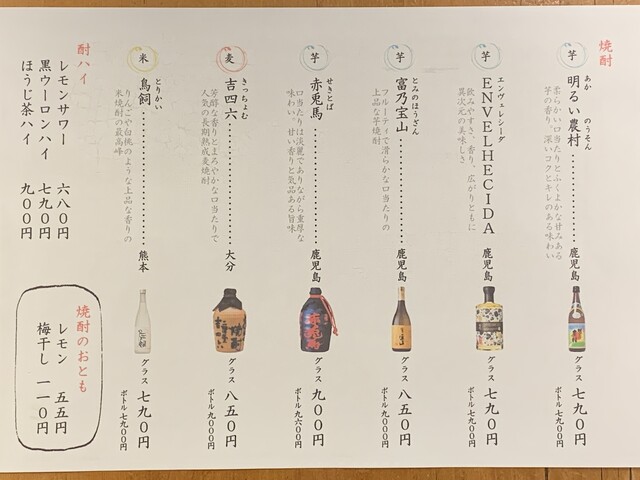 焼酎
芋
明るい農村
あか
のうそん
鹿児島
柔らかい口当たりとふくよかな甘みある
芋の香り、深いコクとキレのある味わい
グラス 七九〇円
ボトル 七九〇〇円
芋
ENVELHECIDA
エンヴェレシーダ
鹿児島
飲みやすさ、香り、広がりともに
異次元の美味しさ
グラス 七九〇円
ボトル 七九〇〇円
芋
富乃宝山
とみのほうざん
鹿児島
フルーティで滑らかな口当たりの
上品な芋焼酎
グラス 八五〇円
ボトル 九〇〇〇円
芋
赤兎馬
せきとば
鹿児島
口当たりは淡麗でありながら重厚な
味わい、甘い香りと気品ある旨味
グラス 九〇〇円
ボトル 九六〇〇円
麦
吉四六
きっちょむ
大分
芳醇な香りとまろやかな口当たりで
人気の長期熟成麦焼酎
グラス 八五〇円
ボトル 九〇〇〇円
米
鳥飼
とりかい
熊本
りんごや白桃のような上品な香りの
米焼酎の最高峰
グラス 七九〇円
ボトル 七九〇〇円
酎ハイ
レモンサワー 六八〇円
黒ウーロンハイ 七九〇円
ほうじ茶ハイ 九〇〇円
焼酎のおとも
レモン 五五円
梅干し 一一〇円